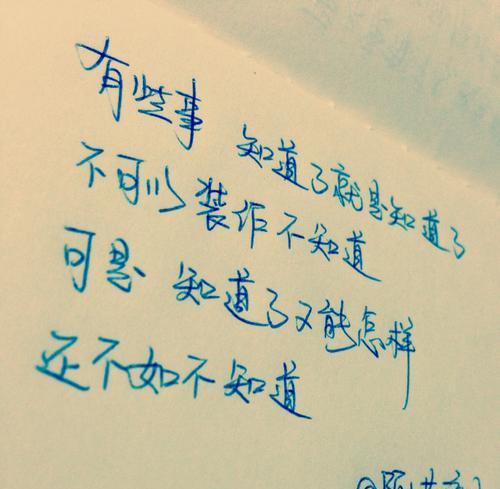 有些事 知道了就是知道了
不可以装作不知道
可是 知道了又能怎样
还不如不知道